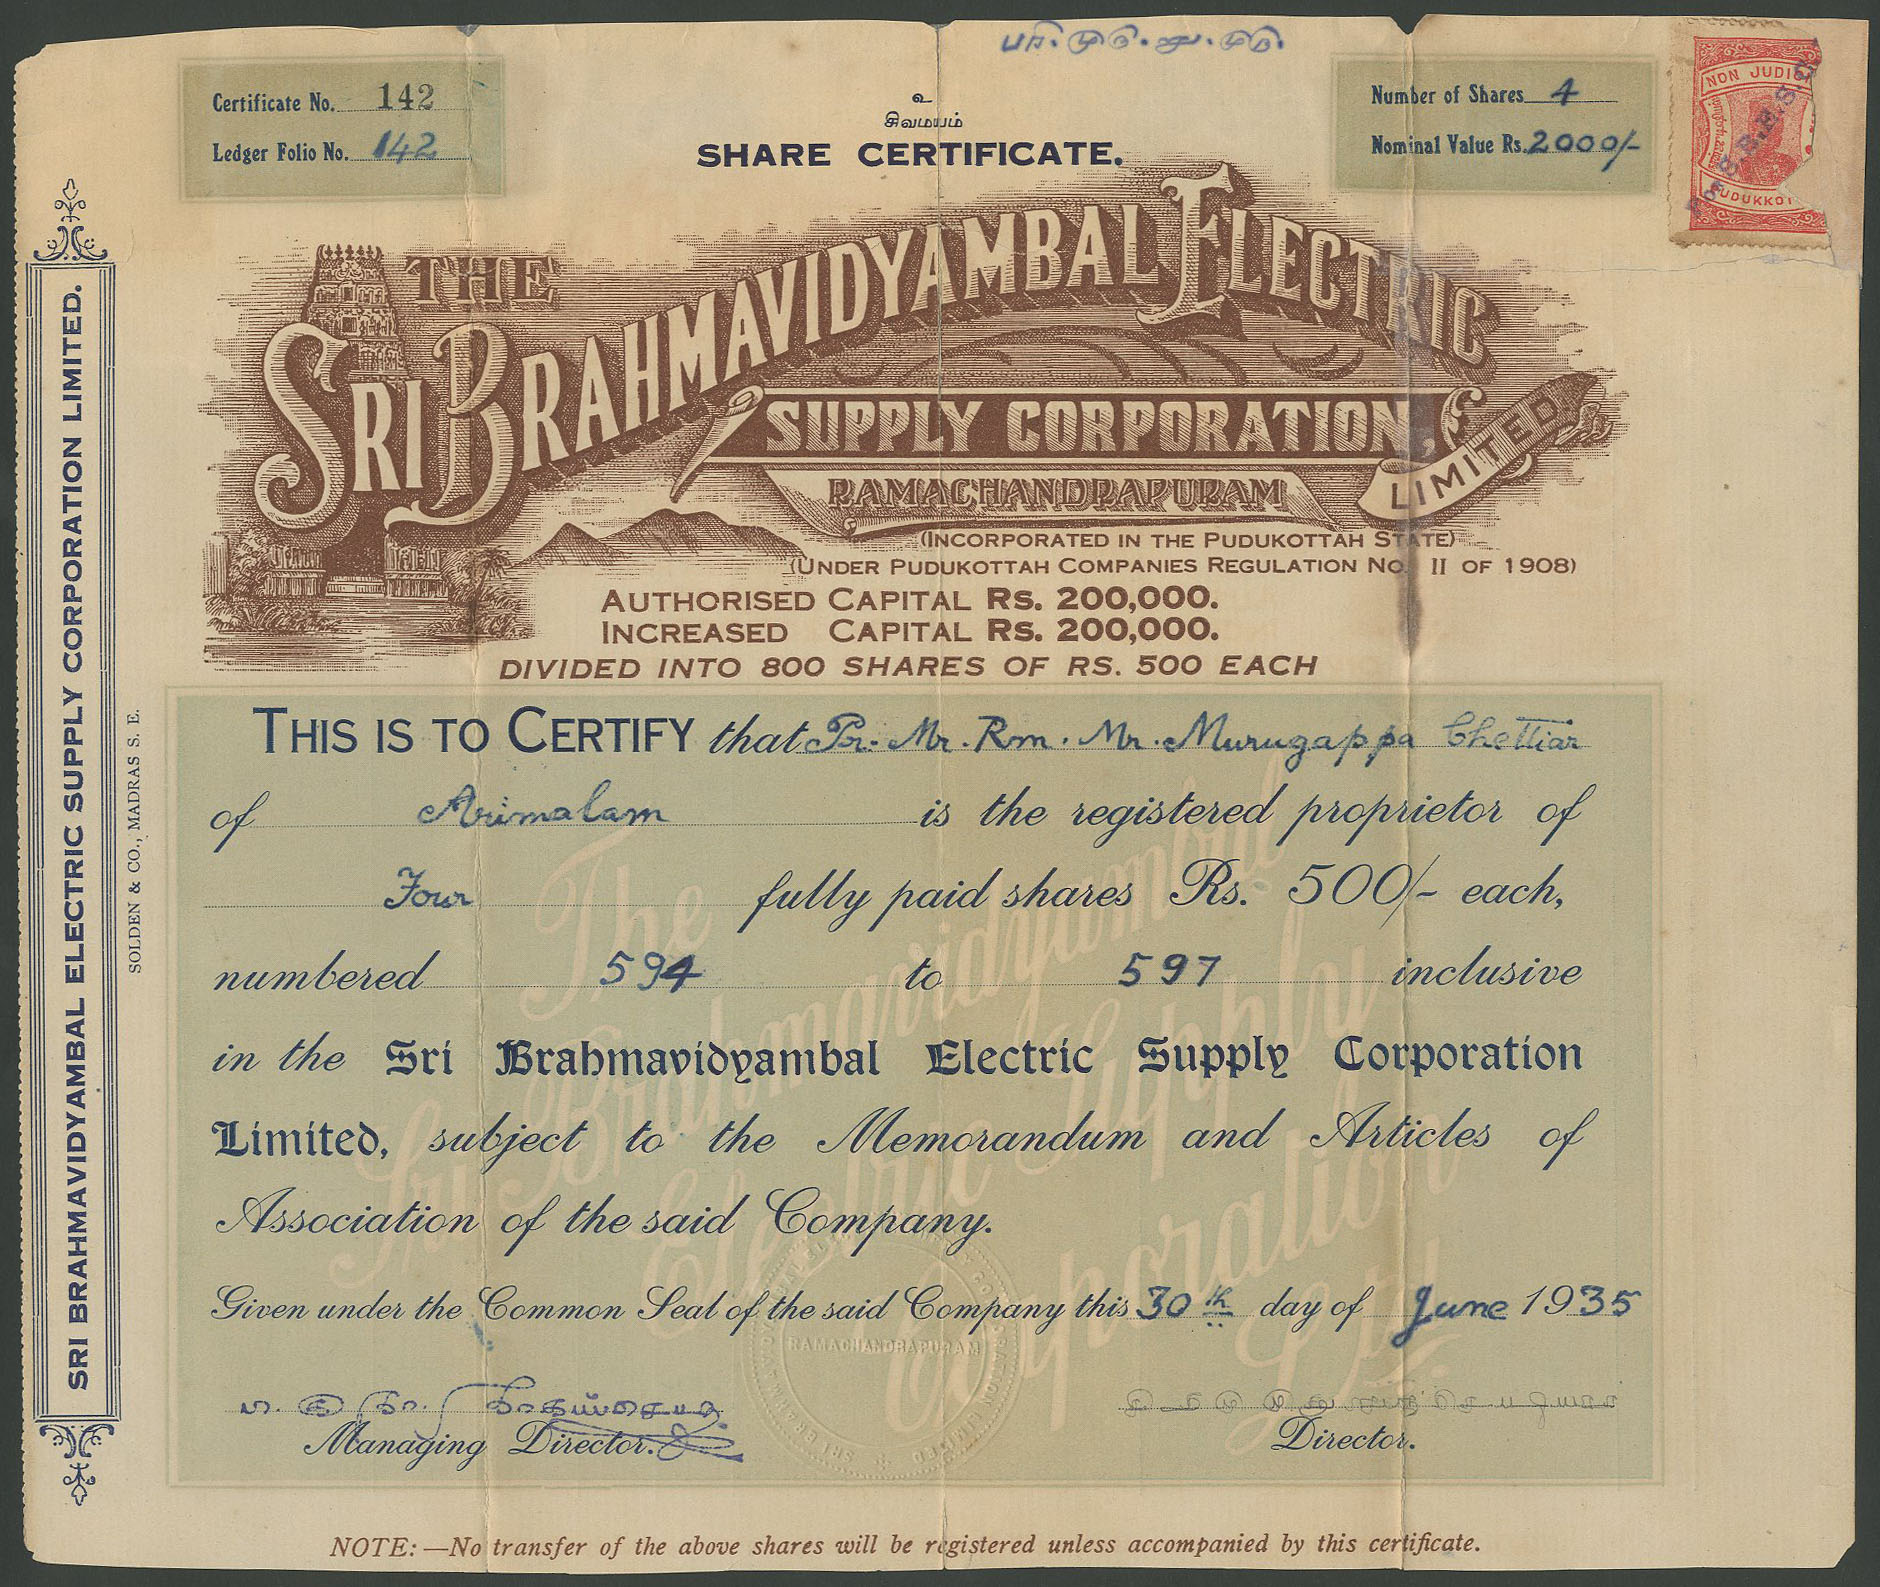 Certificate No. 142
Ledger Folio No. 142
உ
சிவமயம்
SHARE CERTIFICATE.
Number of Shares 4
Nominal Value Rs. 2000/-
NON JUDIC
PUDUKKOT
THE
SRI BRAHMAVIDYAMBAL ELECTRIC
SUPPLY CORPORATION,
LIMITED
RAMACHANDRAPURAM
(INCORPORATED IN THE PUDUKOTTAH STATE)
(UNDER PUDUKOTTAH COMPANIES REGULATION NO. II OF 1908)
AUTHORISED CAPITAL RS. 200,000.
INCREASED CAPITAL RS. 200,000.
DIVIDED INTO 800 SHARES OF RS. 500 EACH
THIS IS TO CERTIFY that Pr. Mr. Rm. Mr. Murugappa Chettiar
of Arimalam is the registered proprietor of
Four fully paid shares Rs. 500/- each,
numbered 594 to 597 inclusive
in the Sri Brahmavidyambal Electric Supply Corporation
Limited, subject to the Memorandum and Articles of
Association of the said Company.
Given under the Common Seal of the said Company this 30th day of June 1935
RAMACHANDRAPURAM
Managing Director.
Director.
NOTE:—No transfer of the above shares will be registered unless accompanied by this certificate.
SRI BRAHMAVIDYAMBAL ELECTRIC SUPPLY CORPORATION LIMITED.
SOLDEN & CO., MADRAS S. E.
The
Sri Brahmavidyambal
Electric Supply
Corporation
Ltd